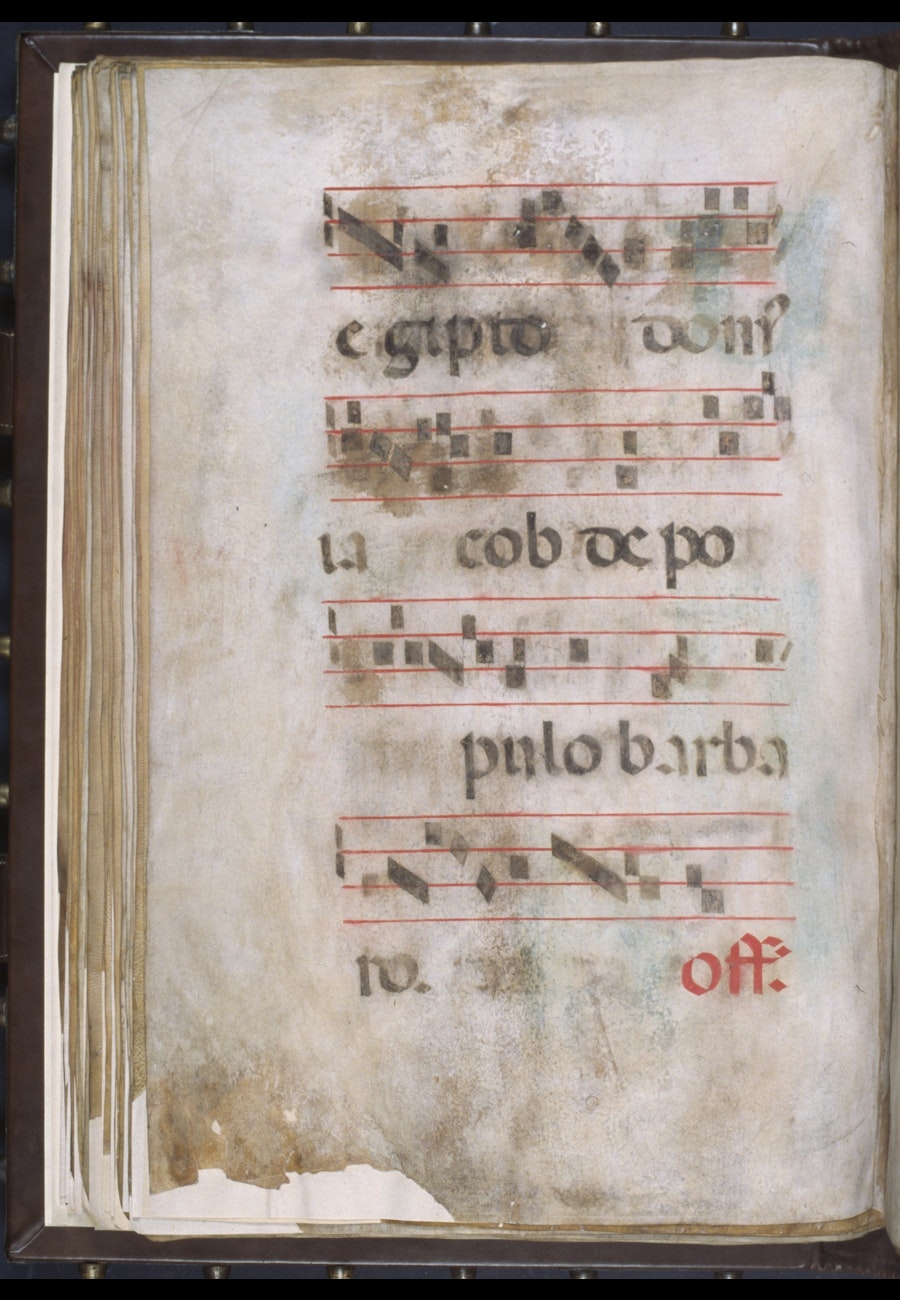 egipto domꝰ
ia cob de po
pulo barba
ro. off: